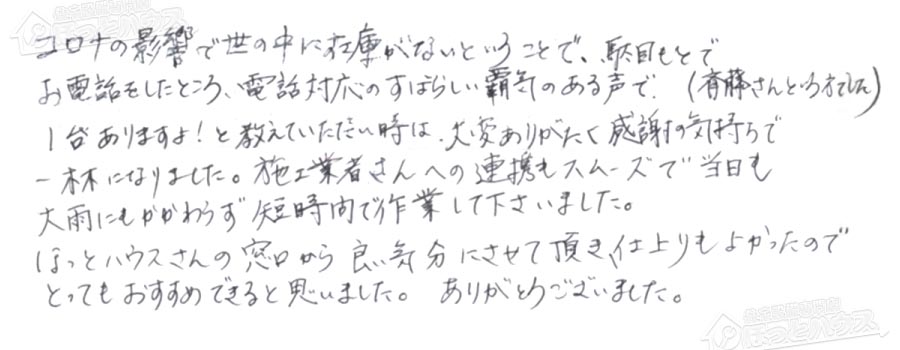 コロナの影響で世の中に在庫がないということで、駄目もとで
お電話をしたところ、電話対応のすばらしい覇気のある声で、(斉藤さんという方でした)
1台ありますよ!と教えていただいた時は、大変ありがたく感謝の気持ちで
一杯になりました。施工業者さんへの連携もスムーズで当日も
大雨にもかかわらず短時間で作業して下さいました。
ほっとハウスさんの窓口から良い気分にさせて頂き、仕上りもよかったので
とってもおすすめできると思いました。ありがとうございました。
ほっとハウス
ほっとハウス